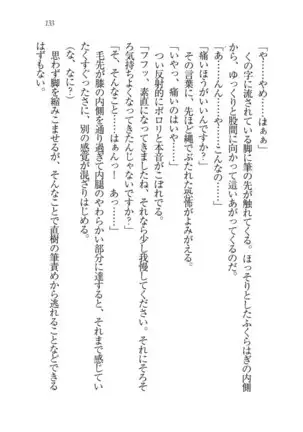 133
「や……やめ……はぁぁ」
くの字に流されている脚に筆の先が触れてくる。ほっそりとしたふくらはぎの内側
から、ゆっくりと股間に向かって這いあがってくるのだ。
「あ……んん……や……こんなの……」
「痛いほうがいいんですか？」
その言葉に、先ほど縄でぶたれた恐怖がよみがえる。
「いやっ、痛いのはいや……」
つい反射的にポロリと本音がこぼれでる。
「フフッ、素直になってきましたね、それなら少し我慢してください。それにそろそ
ろ気持ちよくなってきたんじゃないですか？」
「そ、そんなこと……はぁんっ！　あっ……」
毛先が膝の内側を通り過ぎて内腿のやわらかい部分に達すると、それまで感じてい
たくすぐったさに、別の感覚が混ざりはじめる。
思わず脚を縮みこませるが、そんなことで直樹の筆責めから逃れることなどできる
はずもない。